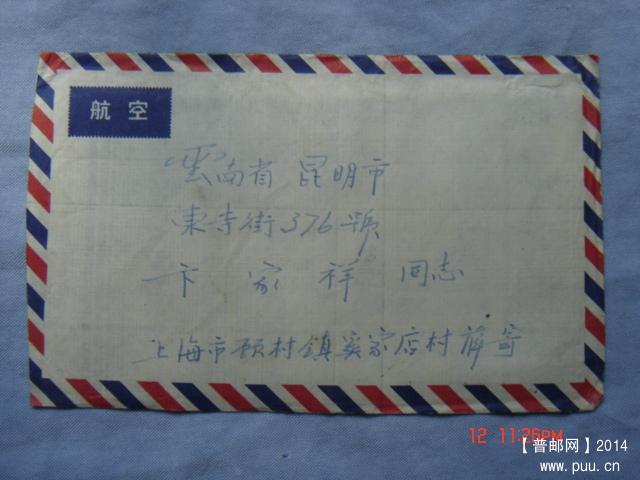 航空
雲南省 昆明市
東寺街376號
卞家祥 同志
上海市顾村鎮奚家店村薛寄
12 11:26PM
【普邮网】2014
www.puu.cn